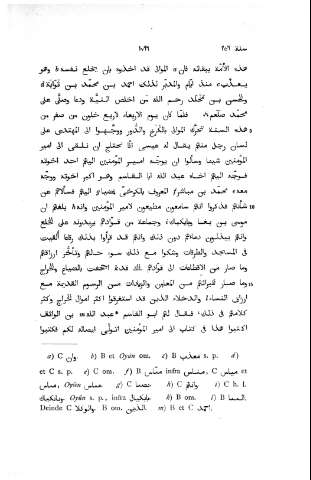 سنة ٢٥٦ ١٧٩٦
هذه الأمة ببقائه فان الموالى قد اخذوه بان يخلع نفسه وهو
يعذب منذ ايام والمدبر لذلك احمد بن محمد بن ثوابة
والحسن بن مخلد رحم الله من اخلص النية ودعا وصلى على
محمد صلعم فلما كان يوم الاربعاء لاربع خلون من صفر من
هذه السنة تحرك الموالى بالكرخ والدور ووجهوا الى المهتدى على
لسان رجل منهم يقال له عيسى انا نحتاج ان نلقى الى امير
المؤمنين شيئا وسألوا ان يوجه امير المؤمنين اليهم احد اخوته
فوجه اليهم اخاه عبد الله ابا القاسم وهو اكبر اخوته ووجه
معه محمد بن مباشر المعروف بالكرخى فمضيا اليهم فسألاهم عن
شأنهم فذكروا انهم سامعون مطيعون لامير المؤمنين وانه بلغهم ان
موسى بن بغا وبايكباك وجماعة من قوادهم يريدونه على الخلع
وانهم يبذلون دماءهم دون ذلك وانهم قد قرأوا بذلك رقاعا ألقيت
في المساجد والطرقات وشكوا مع ذلك سوء حالهم وتأخر ارزاقهم
وما صار من الاقطاعات الى قوادهم التى قد اجحفت بالضياع والخراج
وما صار لكبرائهم من المعاون والزيادات من الرسوم القديمة مع
ارزاق النساء والدخلاء الذين قد استغرقوا اكثر اموال الخراج وكثر
كلامهم في ذلك فقال لهم ابو القاسم عبد الله بن الواثق
اكتبوا هذا في كتاب الى امير المؤمنين اتولى ايصاله لكم فكتبوا
a) C وان. b) B et Oyûn om. c) B s. p. d)
et C s. p. e) C om. f) B infra, C et
Oyûn. g) C. h) C وانهم. i) C h. l.
Oyûn s. p., infra. k) B om. l) B
Deinde C. B om. m) B et C احمد.